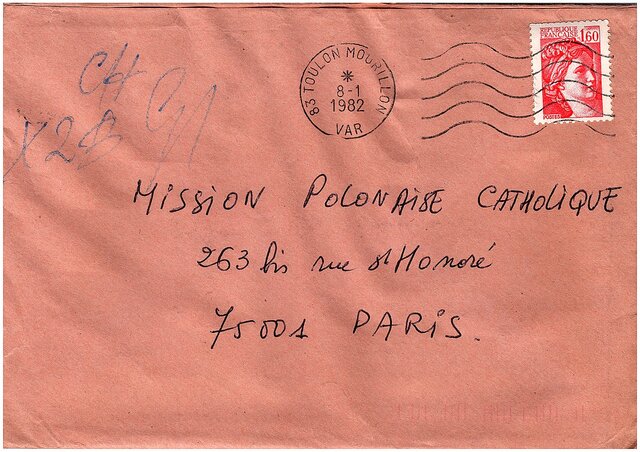 REPUBLIQUE
FRANÇAISE
1,60
POSTES
83 TOULON MOURILLON
*
8-1
1982
VAR
CH
X2B
MISSION POLONAISE CATHOLIQUE
263 bis rue St Honoré
75001 PARIS.